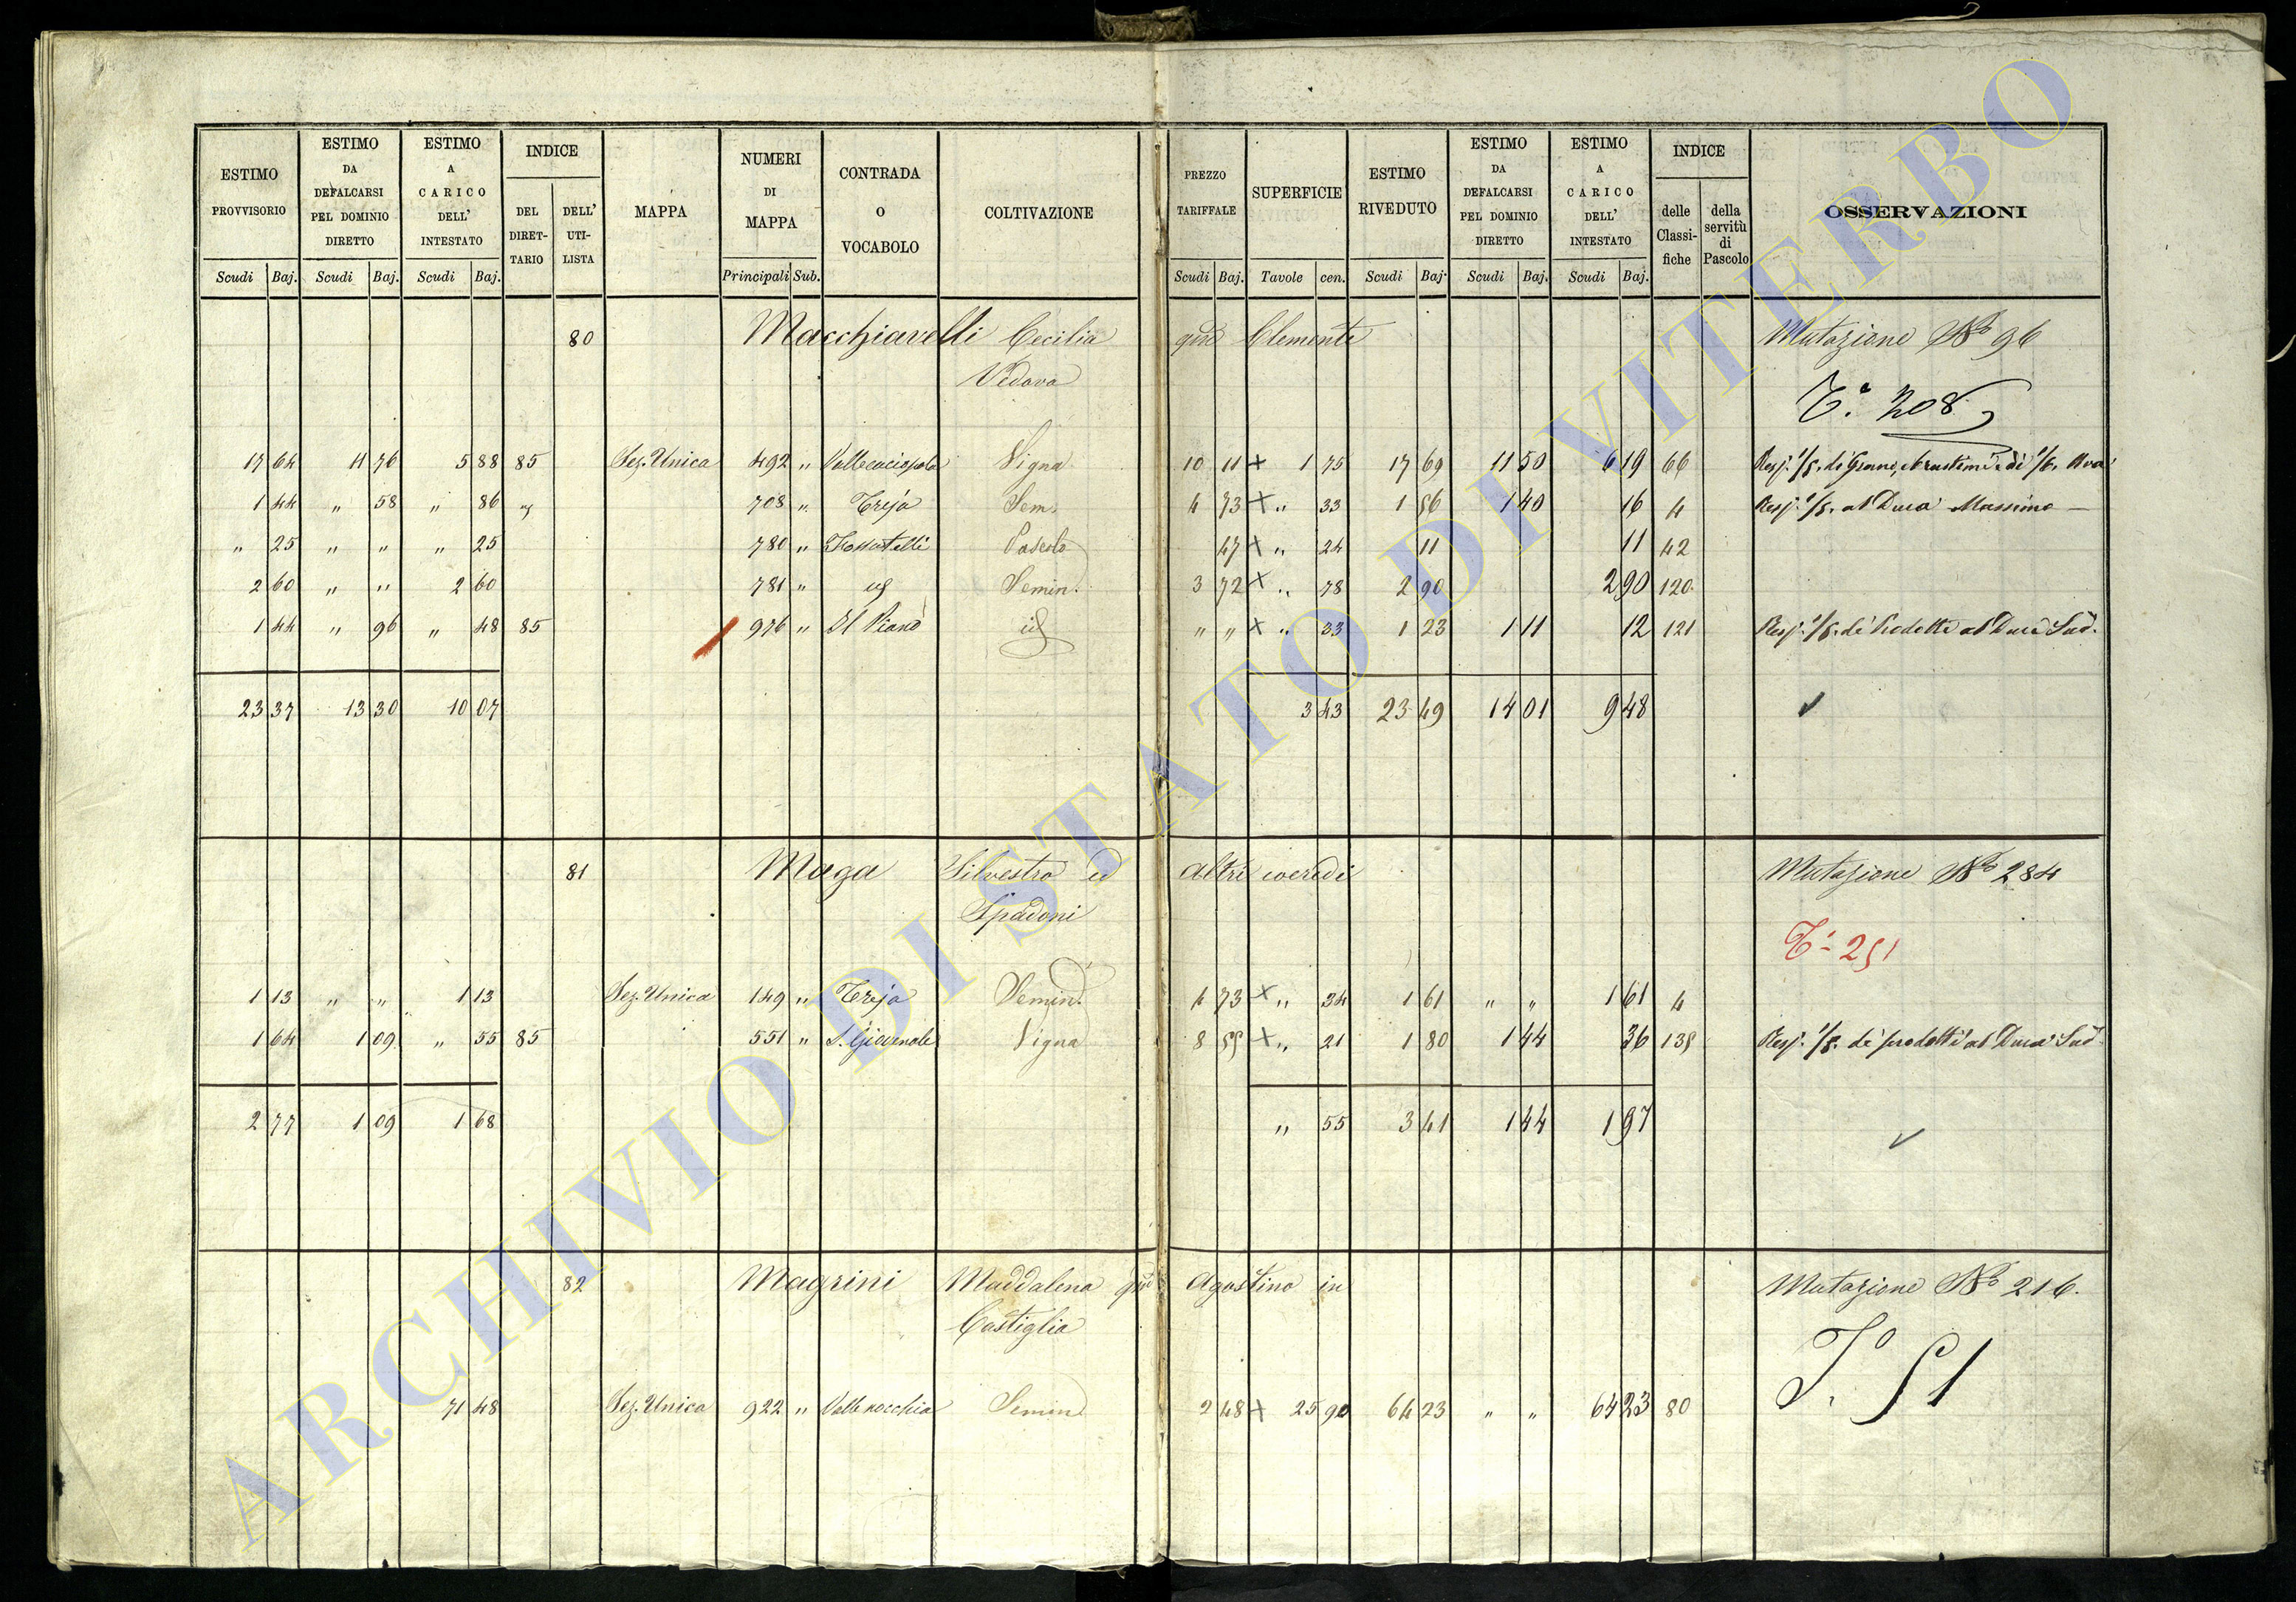 ESTIMO PROVVISORIO Scudi Baj.
ESTIMO DA DEFALCARSI PEL DOMINIO DIRETTO Scudi Baj.
ESTIMO A CARICO DELL' INTESTATO Scudi Baj.
INDICE DEL DIRET-TARIO DELL' UTI-LISTA
MAPPA
NUMERI DI MAPPA Principali Sub.
CONTRADA O VOCABOLO
COLTIVAZIONE
PREZZO TARIFFALE Scudi Baj.
SUPERFICIE Tavole cen.
ESTIMO RIVEDUTO Scudi Baj.
ESTIMO DA DEFALCARSI PEL DOMINIO DIRETTO Scudi Baj.
ESTIMO A CARICO DELL' INTESTATO Scudi Baj.
INDICE delle Classi-fiche della servitù di Pascolo
OSSERVAZIONI
80 Macchiavelli Cecilia qm Clemente Mutazione No 96
Vedova
Ta. 208
17 64 11 76 5 88 85 Sez. Unica 492 " Vigna 10 11 x 1 75 17 69 11 50 6 19 66 Resp. 1/5. di Grano,
1 44 " 58 " 86 " 708 " Treja Sem. 4 73 x " 33 1 56 1 40 16 4 Resp. 1/5. al Duca Massimo
" 25 " " " 25 780 " Pascolo 47 x " 24 11 11 42
2 60 " " 2 60 781 " id Semin. 3 72 x " 78 2 90 2 90 120
1 44 " 96 " 48 85 976 " Il Piano id " " x " 33 1 23 1 11 12 121 Resp. 1/5. di Prodotti al Duca Sud.
23 37 13 30 10 07 3 43 23 49 14 01 9 48
81 Maga Silvestro ed altri coeredi Mutazione No 284
Spadoni
Ta 251
1 13 " " 1 13 Sez. Unica 149 " Treja Semin. 4 73 x " 34 1 61 " " 1 61 4
1 64 1 09 " 55 85 551 " S. Giovenale Vigna 8 55 x " 21 1 80 1 44 36 135 Resp. 1/5. di prodotti al Duca Sud.
2 77 1 09 1 68 " 55 3 41 1 44 1 97
82 Magrini Maddalena qm Agostino in Mutazione No 216.
Castiglia
T. 51
71 48 Sez. Unica 922 " Valle nocchia Semin. 2 48 x 25 90 64 23 " " 64 23 80
ARCHIVIO DI STATO DI VITERBO